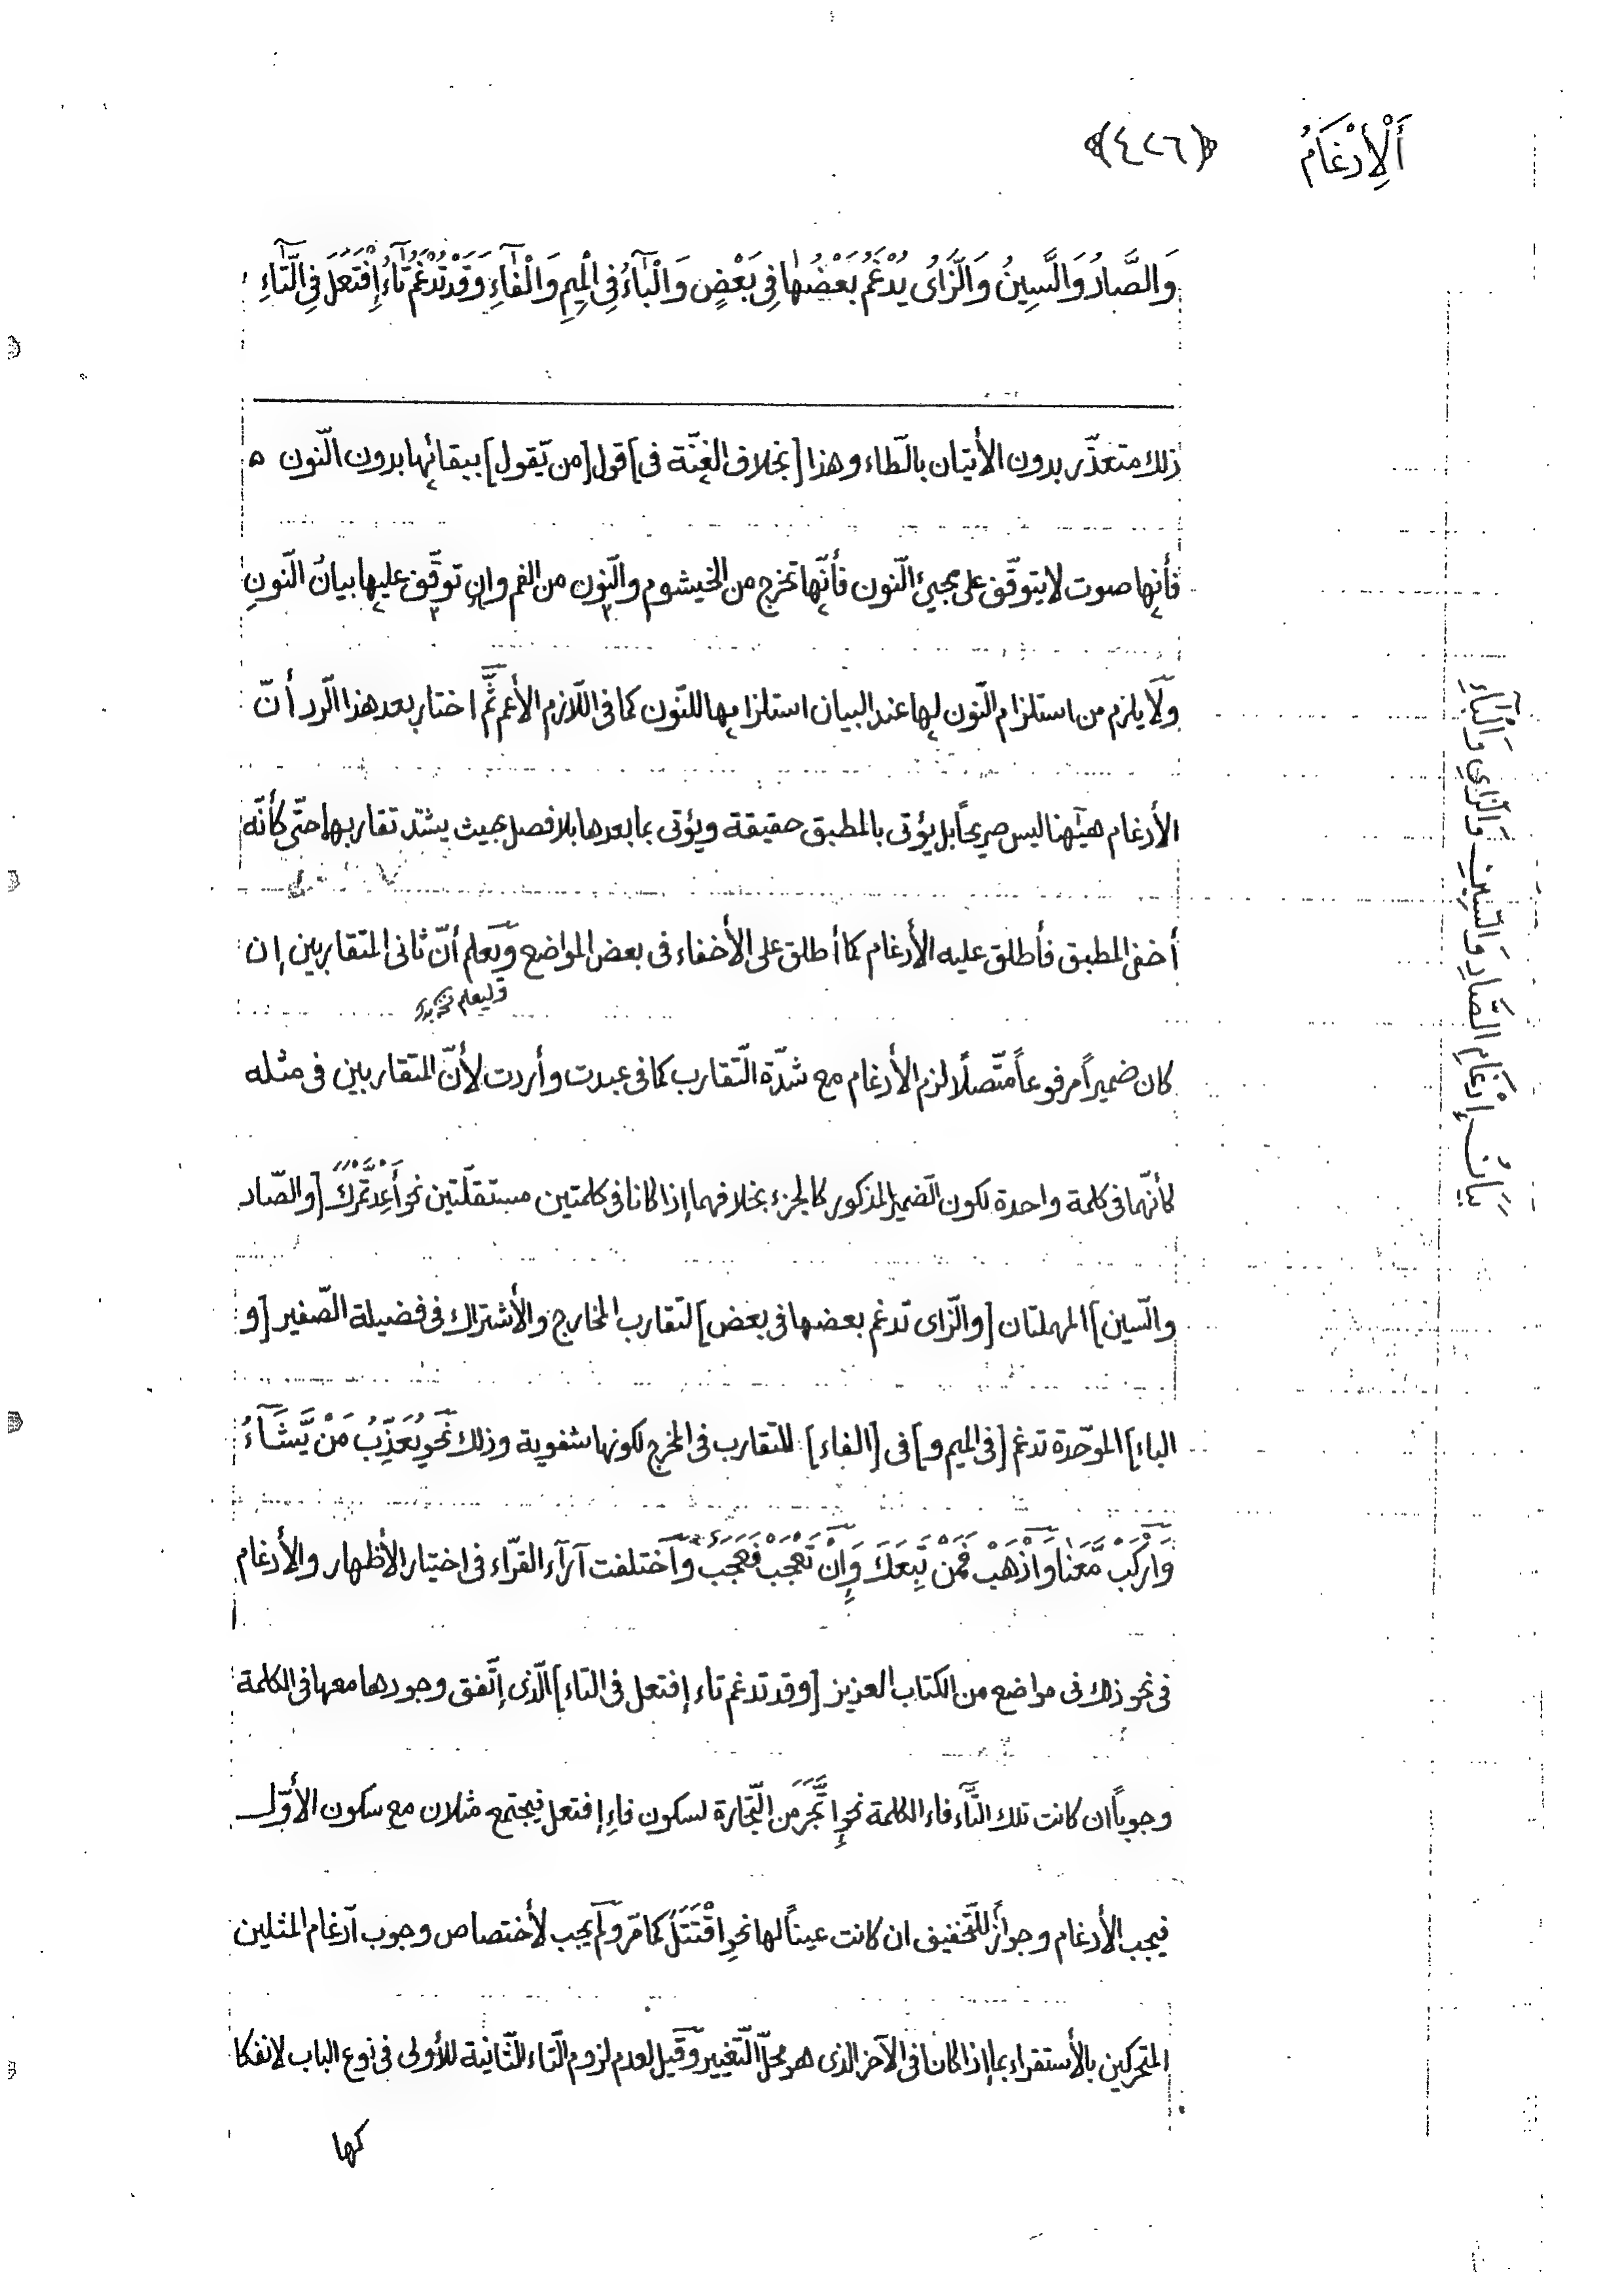 أَلْإِدْغَامُ ﴿٤٢٦﴾
وَالصَّادُ وَالسِّينُ وَالزَّاىُ يُدْغَمُ بَعْضُهَا فِى بَعْضٍ وَالْبَآءُ فِى الْمِيمِ وَالْفَآءِ وَقَدْ تُدْغَمُ تَآءُ إِفْتَعَلَ فِى التَّآءِ
ذلك متعذّر بدون الأتيان بالطّاء وهذا [بخلاف الغنّة فى] قول [من يّقول] ببقائها بدون النّون
فأنها صوت لا يتوقّف على مجيئ النّون فأنّها تخرج من الخيشوم والنّون من الفم وان توقّف عليها بيانُ النّونِ
ولَا يلزم من استلزام النّون لها عند البيان استلزامها للنّون كما فى اللّازم الأعم ثمّ اختار بعد هذا الرّد أنّ
الأدغام هيٰهنا ليس صريحاً بل يؤتى بالمطبق حقيقة ويؤتى بما بعدها بلا فصل بحيث يشتدّ تقاربها حتّى كأنّه
أخفى المطبق فأطلق عليه الأدغام كما أطلق على الأخفاء فى بعض المواضع ويعلم أنّ ثانى المتقاربين إن
وليعلم
كان ضميراً مرفوعاً متّصلًا لزم الأدغام مع شدّة التّقارب كما فى عبدت وأردت لأنّ المتقاربين فى مثله
كأنّهما فى كلمة واحدة لكون الضّمير المذكور كالجزء بخلافهما إذا كانا فى كلمتين مستقلّتين نحو أَعِدْ تَّمْرَكَ [والصّاد
والسّين] المهملتان [والزّاى تدغم بعضها فى بعض] لتقارب المخارج والأشتراك فى فضيلة الصّفير [و
الباء] الموّحدة تدغم [فى الميم و] فى [الفاء] للتقارب فى المخرج لكونها شفوية وذلك نَحو يُعَذِّبُ مَنْ يَّشَآءُ
وَارْكَبْ مَّعَنٰا وَاذْهَبْ فَمَنْ تَبِعَكَ وَإِنْ تَعْجَبْ فَعَجَبٌ واختلفت آرآء القرّاء فى اختيار الأظهار والأدغام
فى نحو ذلك فى مواضع من الكتاب العزيز [وقد تدغم تاء إفتعل فى التاء] الّذى إتّفق وجودها معها فى الكلمة
وجوباً ان كانت تلك التَّآء فاء الكلمة نحو إِتَّجَرَ من التّجارة لسكون فاءِ إفتعل فيجتمع مثلان مع سكون الأوّل
فيجب الأدغام وجوازًا للتّخفيف ان كانت عيناً لها نحو اقْتَتَلَ كما مرّ ولم يجب لأختصاص وجوب ادغام المثلين
المتحركين بالأستقراء بما إذا كانا فى الآخر الذى هو محلّ التّغيير وقيل لعدم لزوم التّاء الثّانية للأولى فى نوع الباب لانفكا
كها
بَيَانُ إِدْغَامِ الصَّادِ وَالسِّينِ وَالزَّاىِ وَالْبَآءِ